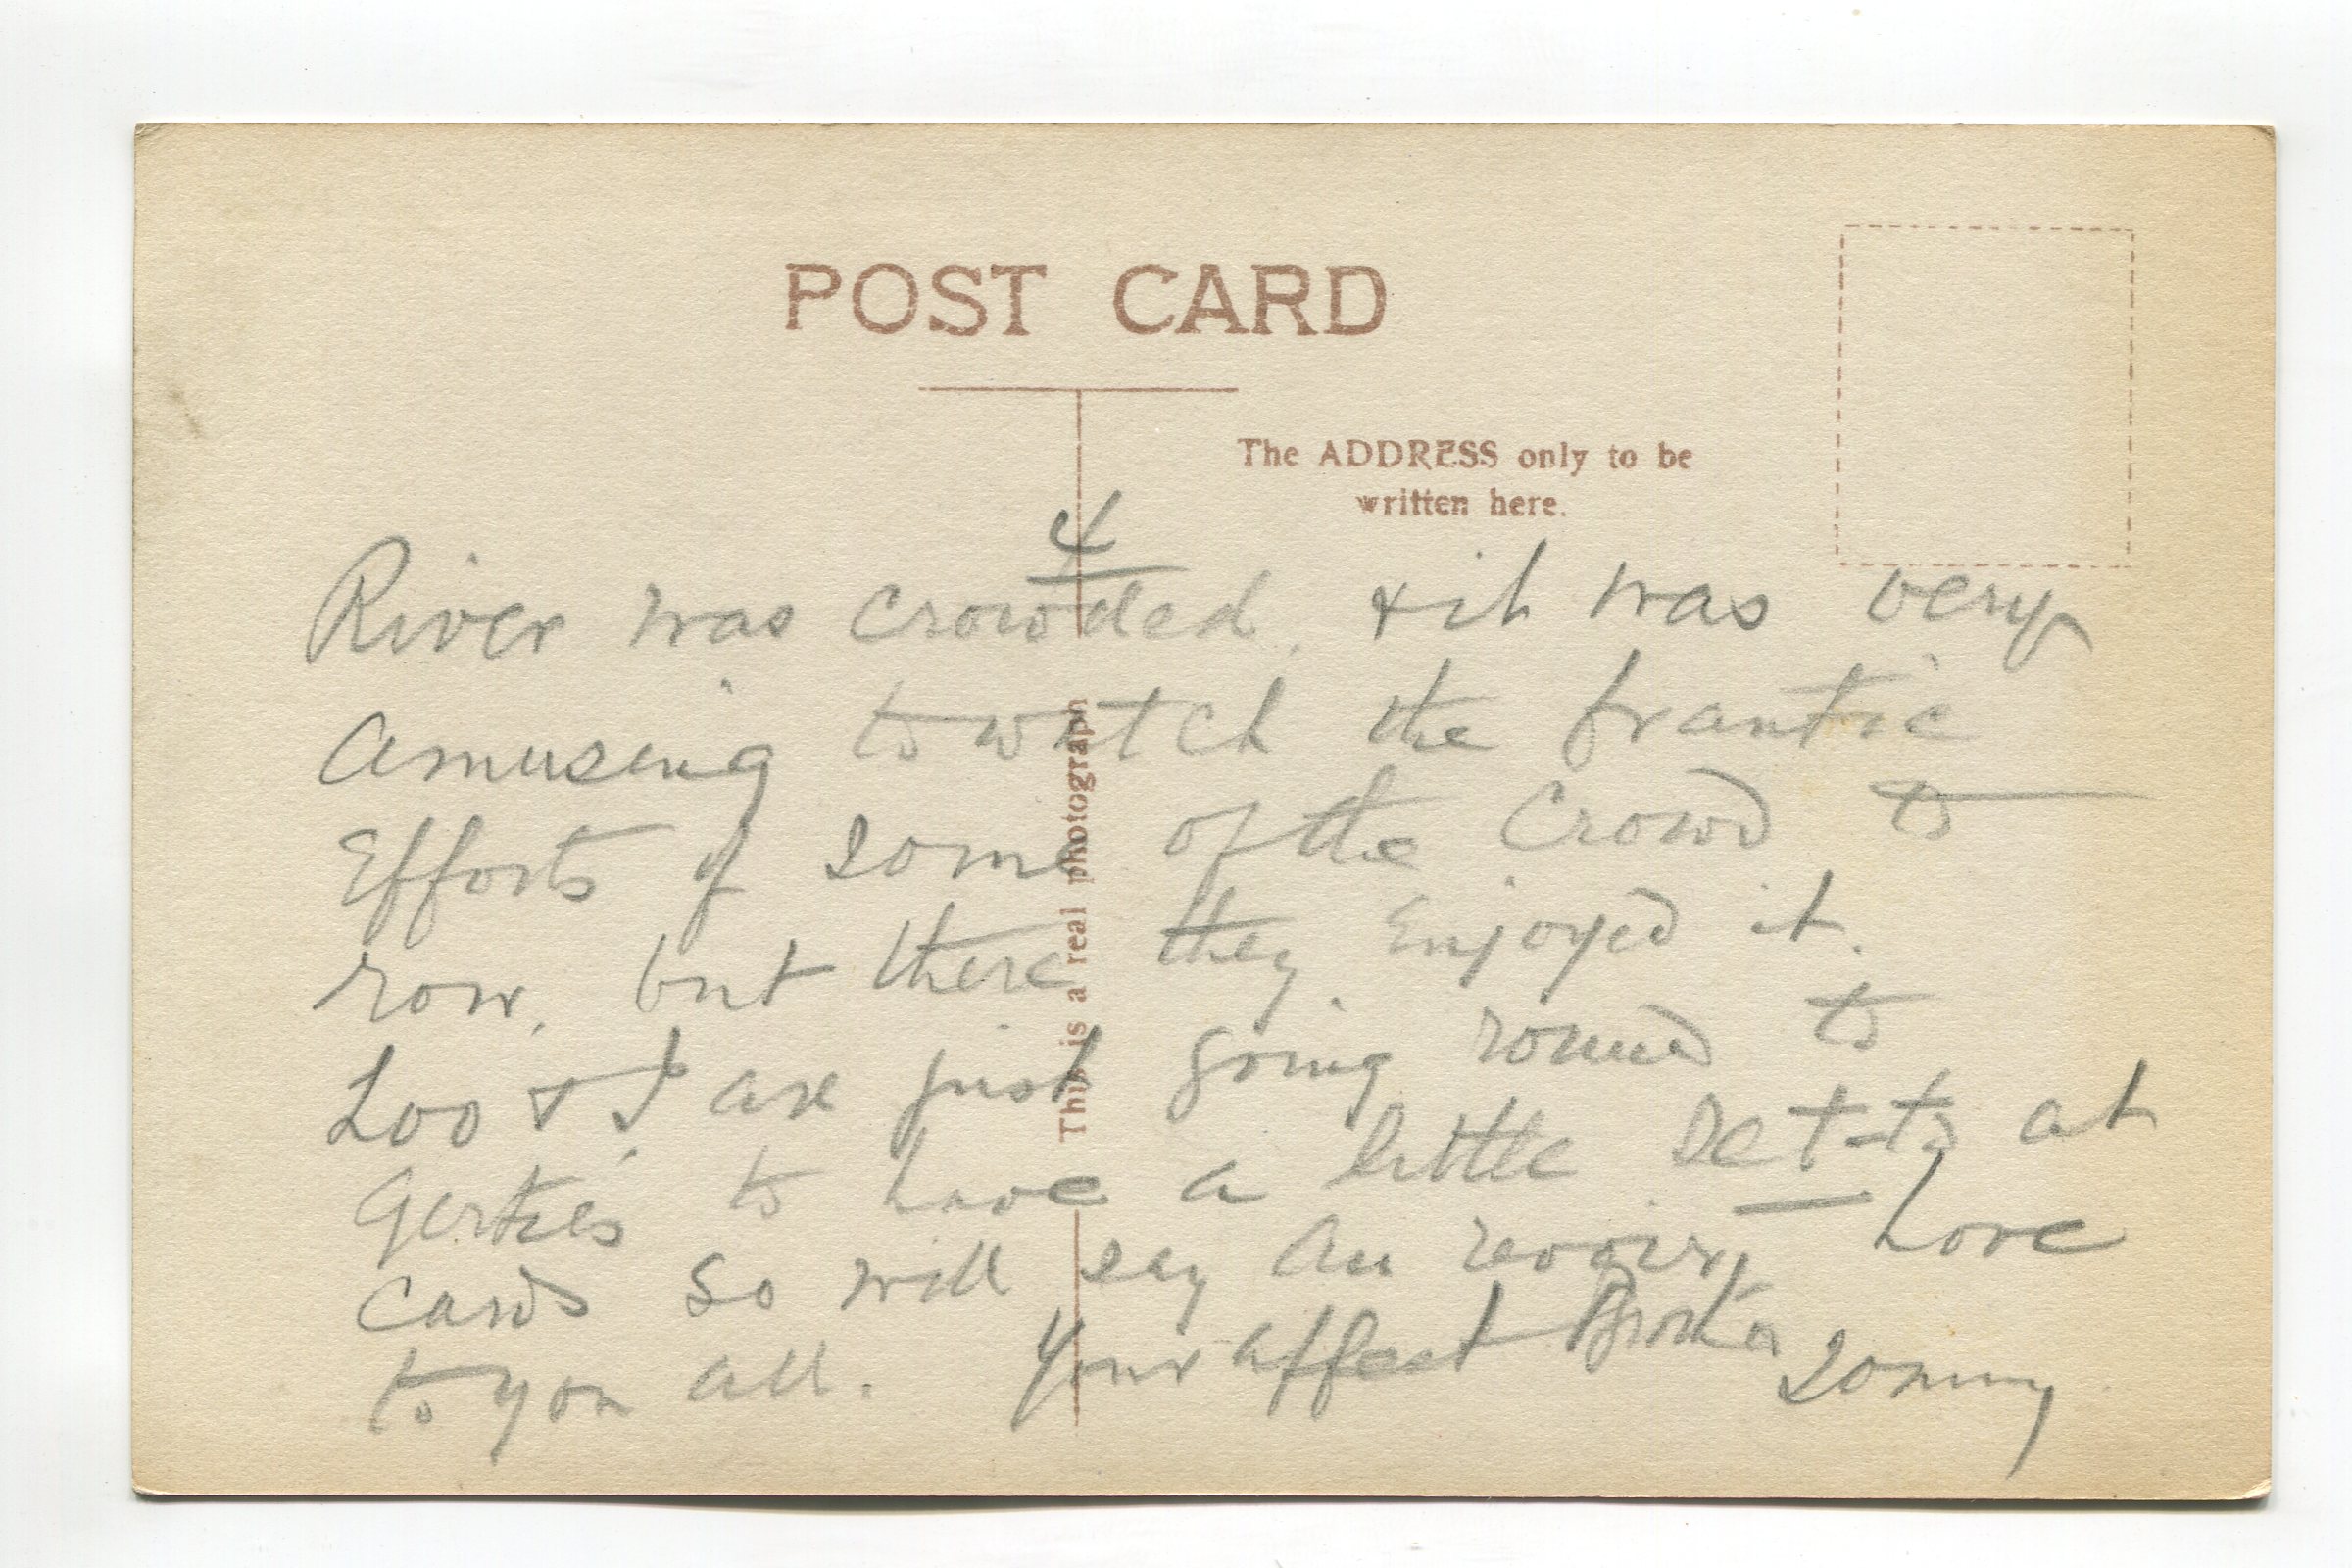 POST CARD
The ADDRESS only to be
written here.
This is a real photograph
4
River was crowded, & it was very
amusing to watch the frantic
Efforts of some of the Crowd to
row, but there they Enjoyed it.
Loo & I are just going round to
Gertie's to have a little Set-to at
Cards so will say Au revoir, Love
to you all. Your affect